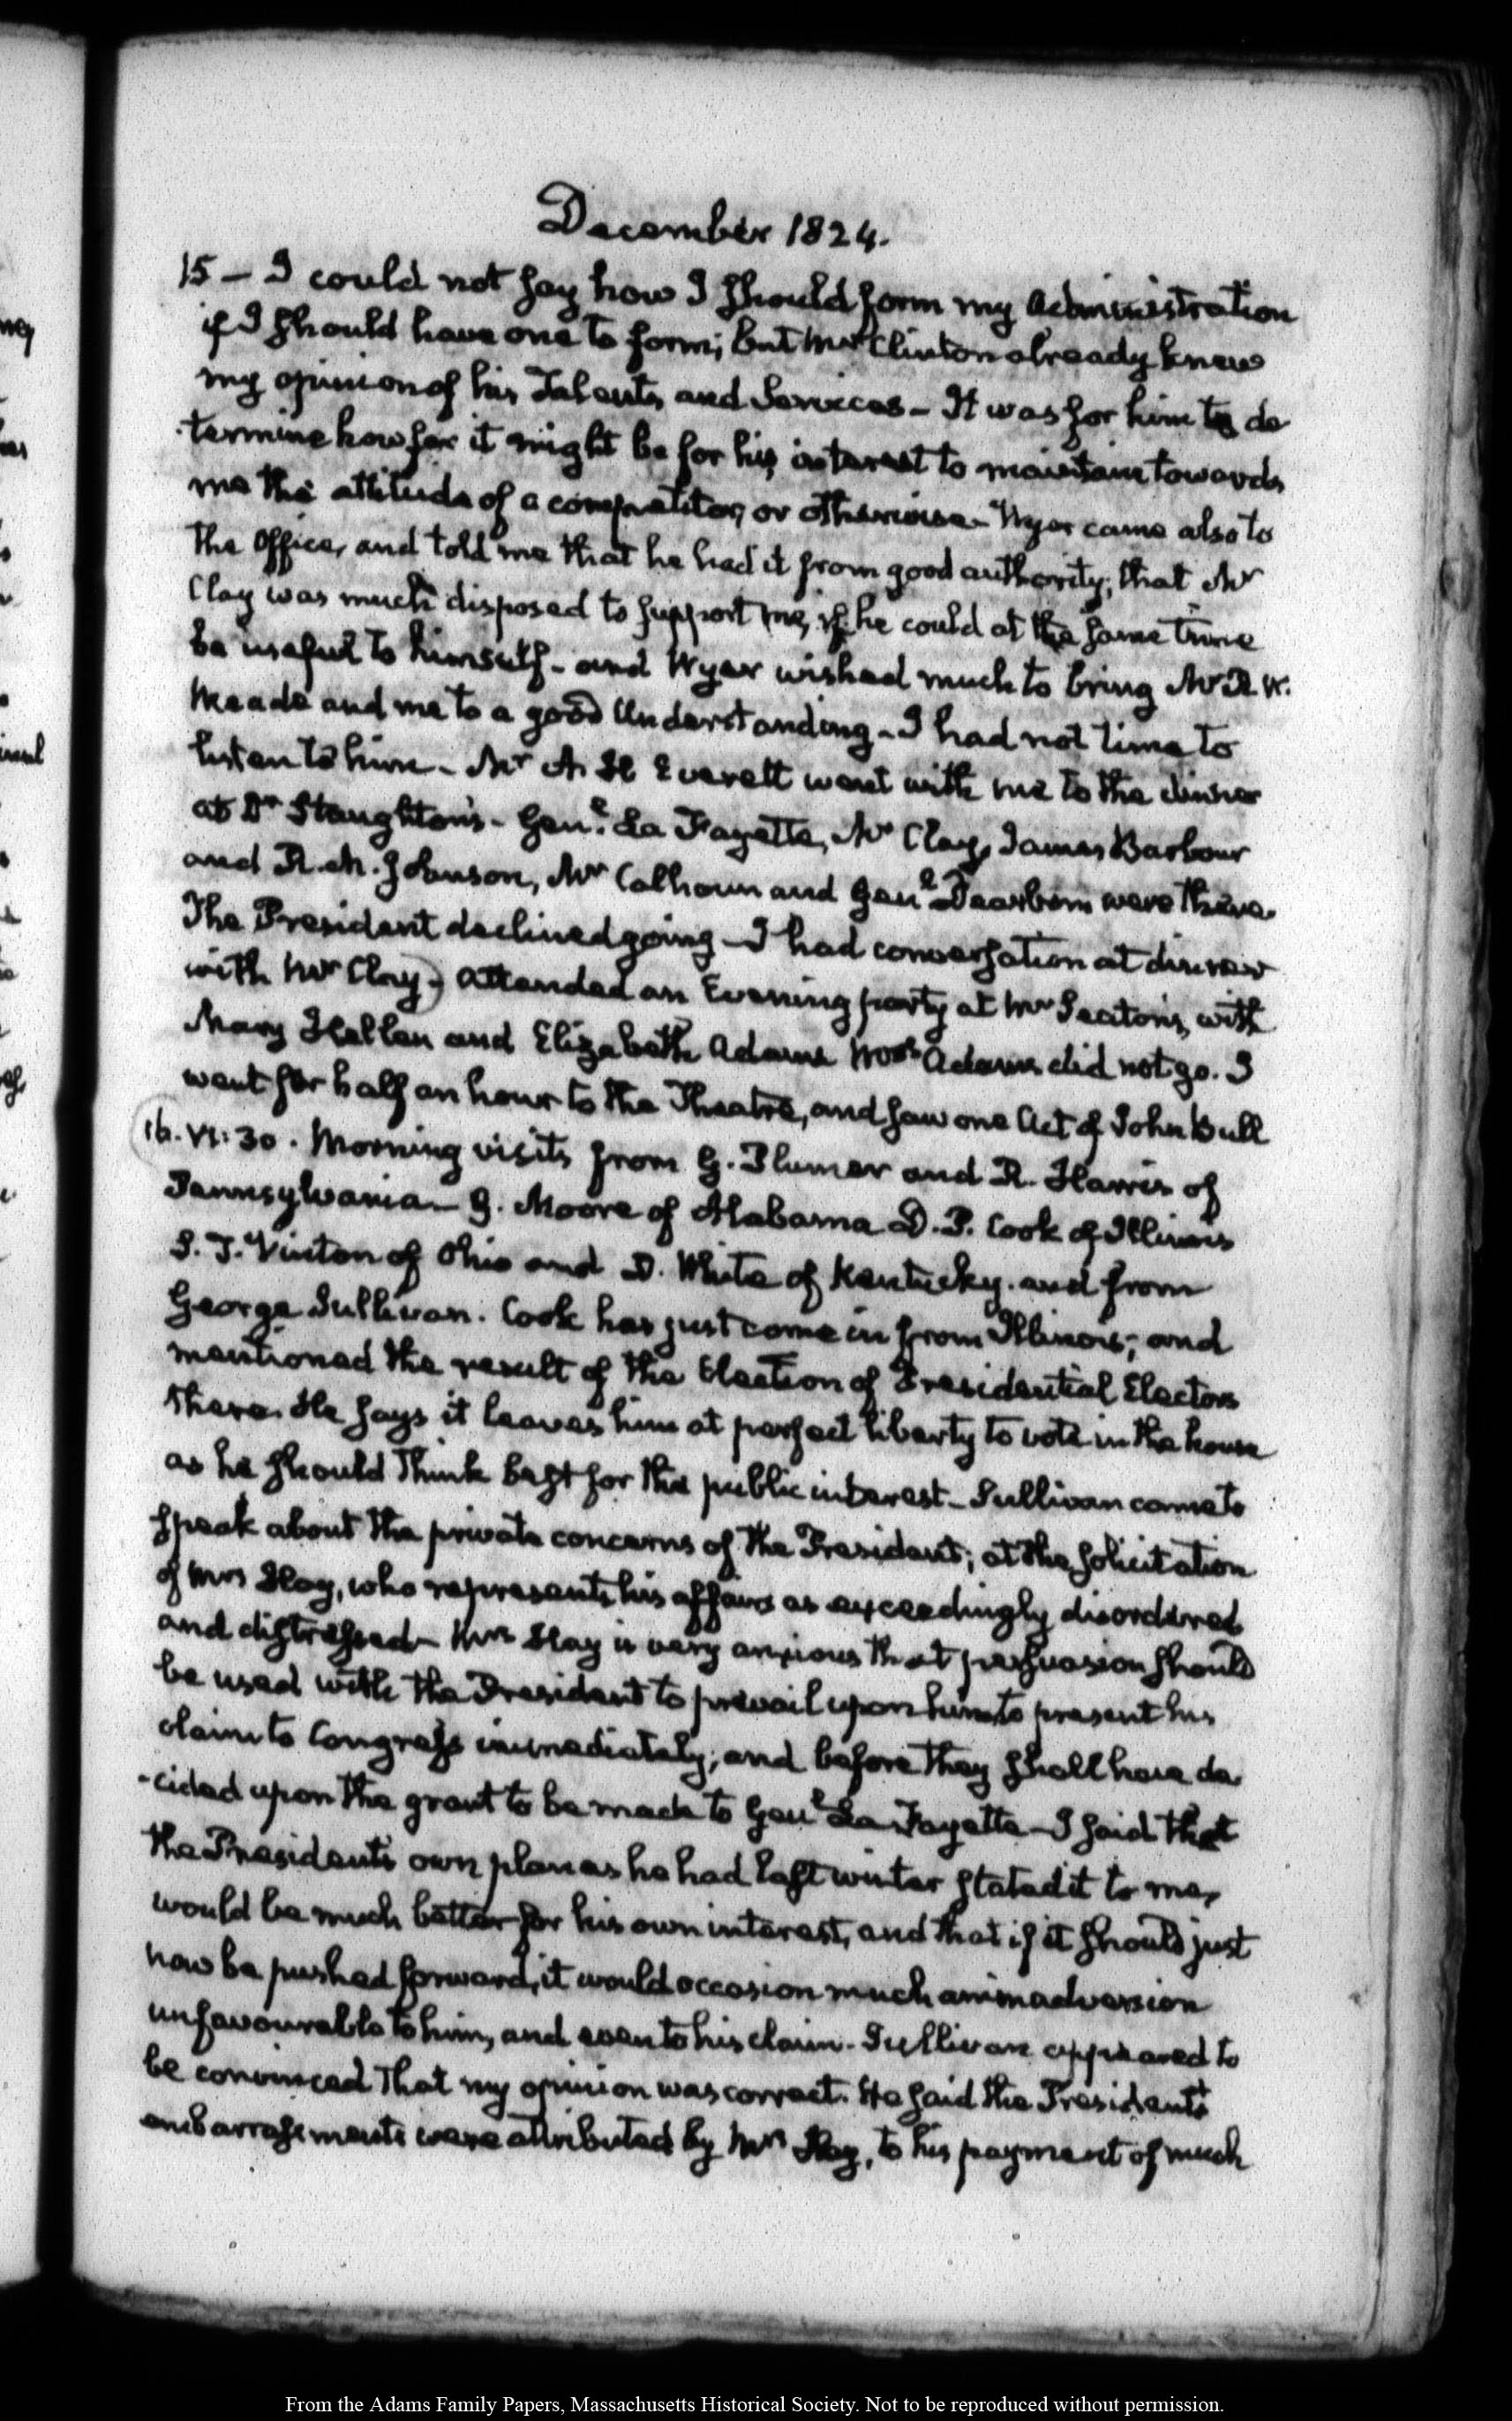 December 1824.
15 – I could not say how I should form my Administration
if I should have one to form; but Mr Clinton already knew
my opinion of his Talents and Services – It was for him to de
-termine how far it might be for his interest to maintain towards
me the attitude of a competitor, or otherwise – Wyer came also to
the Office, and told me that he had it from good authority, that Mr
Clay was much disposed to support me, if he could at the same time
be useful to himself – and Wyer wished much to bring Mr R. W.
Meade and me to a good Understanding – I had not time to
listen to him – Mr A. H. Everett went with me to the dinner
at Dr Staughton's – Genl. La Fayette, Mr Clay, James Barbour
and R. M. Johnson, Mr Calhoun and Genl Dearborn were there.
The President declined going – I had conversation at dinner
with Mr Clay) Attended an Evening party at Mr Seaton's, with
Mary Hellen and Elizabeth Adams Mrs Adams did not go. I
went for half an hour to the Theatre, and saw one Act of John Bull
16. VI: 30. Morning visits from G. Plumer and R. Harris of
Pennsylvania – G. Moore of Alabama D. P. Cook of Illinois
S. F. Vinton of Ohio and D. White of Kentucky. and from
George Sullivan. Cook has just come in from Illinois; and
mentioned the result of the Election of Presidential Electors
there. He says it leaves him at perfect liberty to vote in the house
as he should think best for the public interest – Sullivan came to
speak about the private concerns of the President; at the solicitation
of Mrs Hay, who represents his affairs as exceedingly disordered
and distressed – Mrs Hay is very anxious that persuasion should
be used with the President to prevail upon him to present his
claim to Congress immediately, and before they shall have de
-cided upon the grant to be made to Genl La Fayette – I said that
the President's own plan as he had last winter stated it to me,
would be much better for his own interest, and that if it should just
now be pushed forward, it would occasion much animadversion
unfavourable to him, and even to his claim. Sullivan appeared to
be convinced that my opinion was correct. He said the President's
embarrassments were attributed by Mrs Hay, to his payment of much
From the Adams Family Papers, Massachusetts Historical Society. Not to be reproduced without permission.